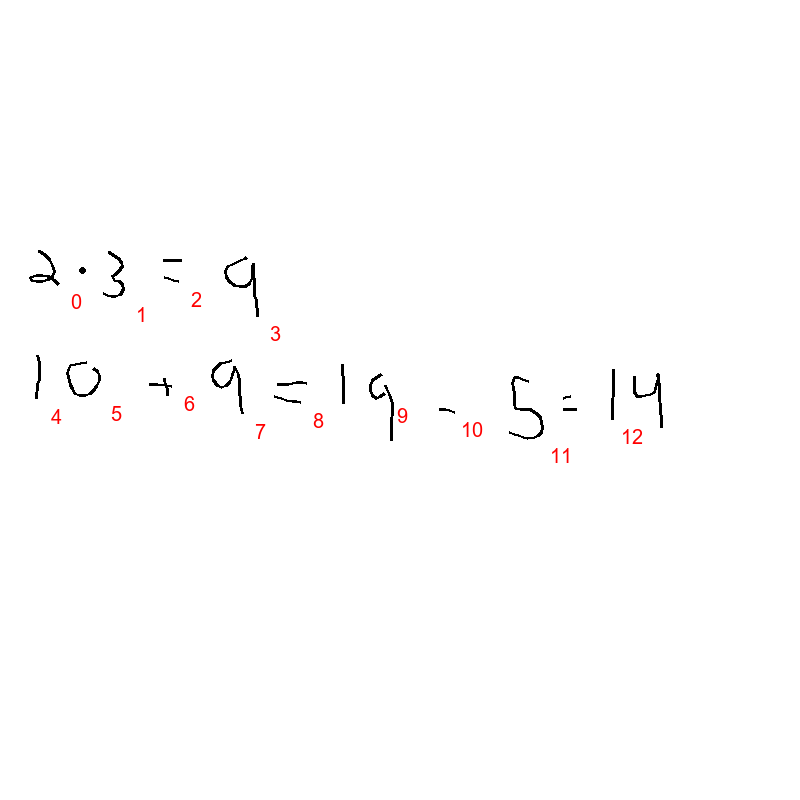 2 · 3 = 9
0 1 2 3
10 + 9 = 19 - 5 = 14
4 5 6 7 8 9 10 11 12